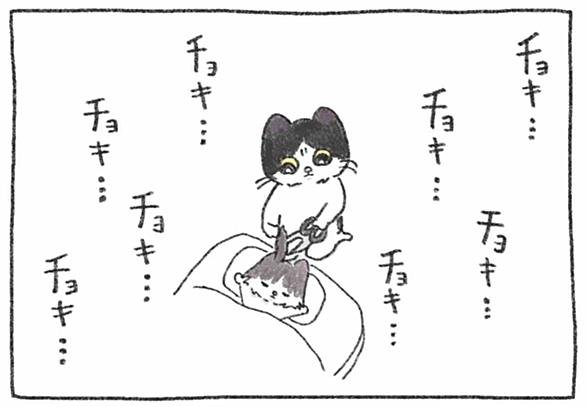 チョキ…
チョキ…
チョキ…
チョキ…
チョキ…
チョキ…
チョキ…
チョキ…